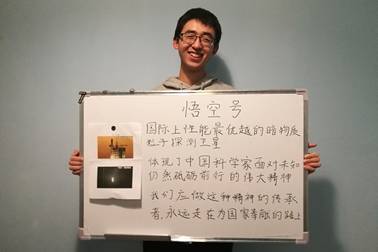 悟空号
国际上性能最优越的暗物质
粒子探测卫星
体现了中国科学家面对未知
仍然砥砺前行的伟大精神
我们应做这种精神的传承
者,永远走在为国家奉献的路上